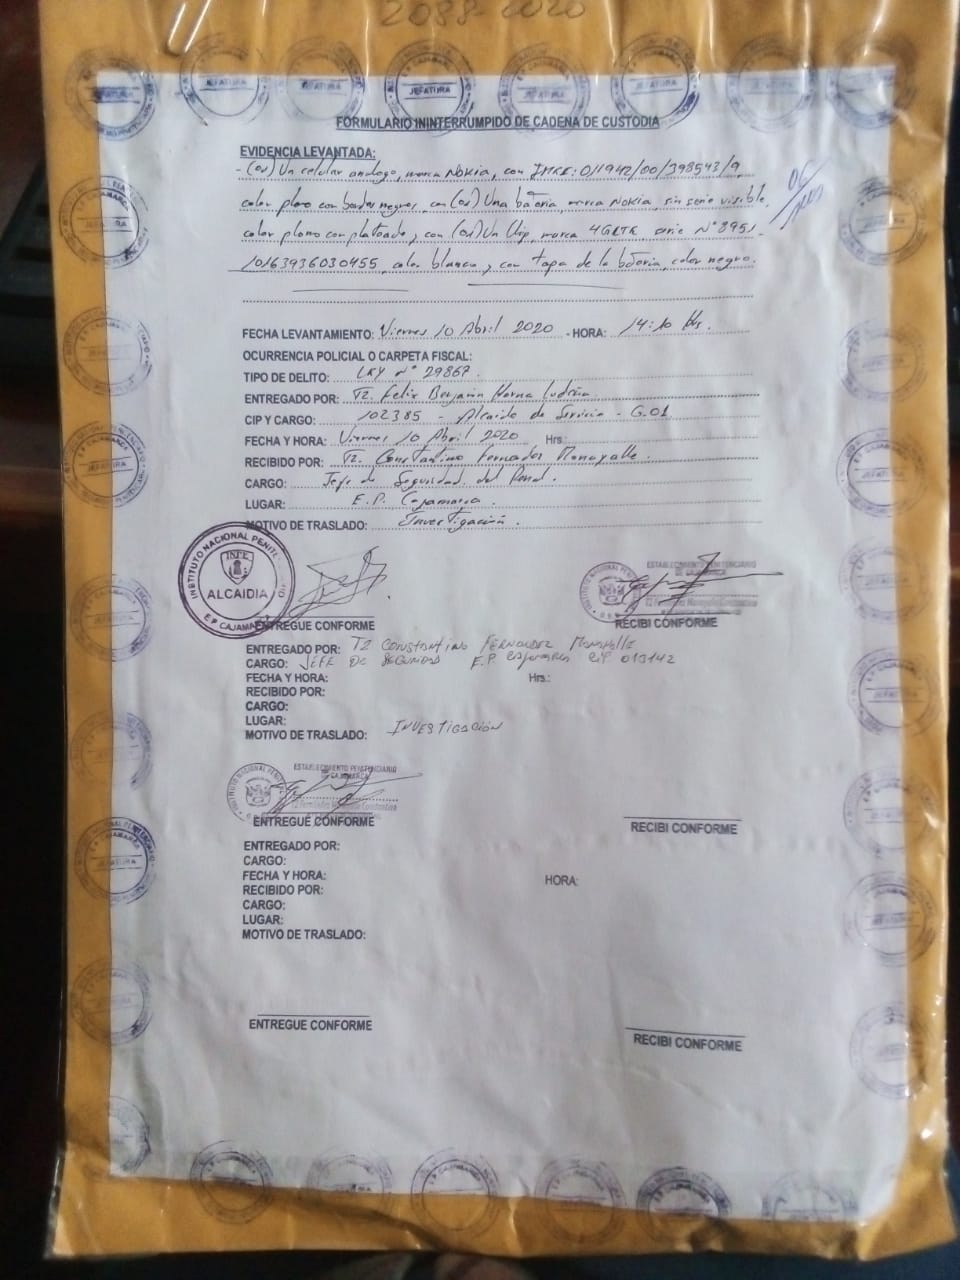 2088-2020
FORMULARIO ININTERRUMPIDO DE CADENA DE CUSTODIA
EVIDENCIA LEVANTADA:
- (01) Un celular analogo, marca Nokia, con IMEE: 011942/00/398543/9,
color plomo con bordes negros, con (01) Una batería, marca Nokia, sin serie visible,
color plomo con plateado, y con (01) Un Chip, marca serie N° 8951-
10163936030455, color blanco, y con tapa de la batería, color negro.
06
FECHA LEVANTAMIENTO: Viernes 10 Abril 2020 - HORA: 14:10 Hrs.
OCURRENCIA POLICIAL O CARPETA FISCAL:
TIPO DE DELITO: LEY N° 29867.
ENTREGADO POR: T2. Felix Benjamin Horna Ludeña
CIP Y CARGO: 102385 - Alcaide de Servicio - G.01
FECHA Y HORA: Viernes 10 Abril 2020 Hrs:
RECIBIDO POR: T2. Constantino Fernandez
CARGO: Jefe de Seguridad del Penal.
LUGAR: E.P. Cajamarca.
MOTIVO DE TRASLADO: Investigación.
INSTITUTO NACIONAL PENITENCIARIO
INPE
ALCAIDIA
E P CAJAMARCA
ENTREGUE CONFORME
ESTABLECIMIENTO PENITENCIARIO
DE CAJAMARCA
RECIBI CONFORME
ENTREGADO POR: T2 CONSTANTINO FERNANDEZ
CARGO: JEFE DE SEGURIDAD E.P. CAJAMARCA CIP 013142
FECHA Y HORA: Hrs.:
RECIBIDO POR:
CARGO:
LUGAR:
MOTIVO DE TRASLADO: INVESTIGACIÓN
ESTABLECIMIENTO PENITENCIARIO
DE CAJAMARCA
ENTREGUE CONFORME
RECIBI CONFORME
ENTREGADO POR:
CARGO:
FECHA Y HORA: HORA:
RECIBIDO POR:
CARGO:
LUGAR:
MOTIVO DE TRASLADO:
ENTREGUE CONFORME
RECIBI CONFORME